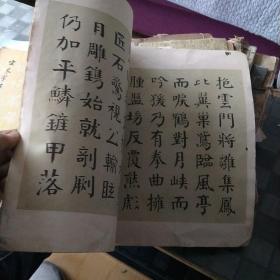 抱雲門將雛集鳳
比翼巢鴛臨風亭
而唳鶴對月峽而
吟猨乃有拳曲擁
腫盤坳反覆熊彪
匠石驚視公輸眩
目雕鐫始就剞劂
仍加平鱗鏟甲落